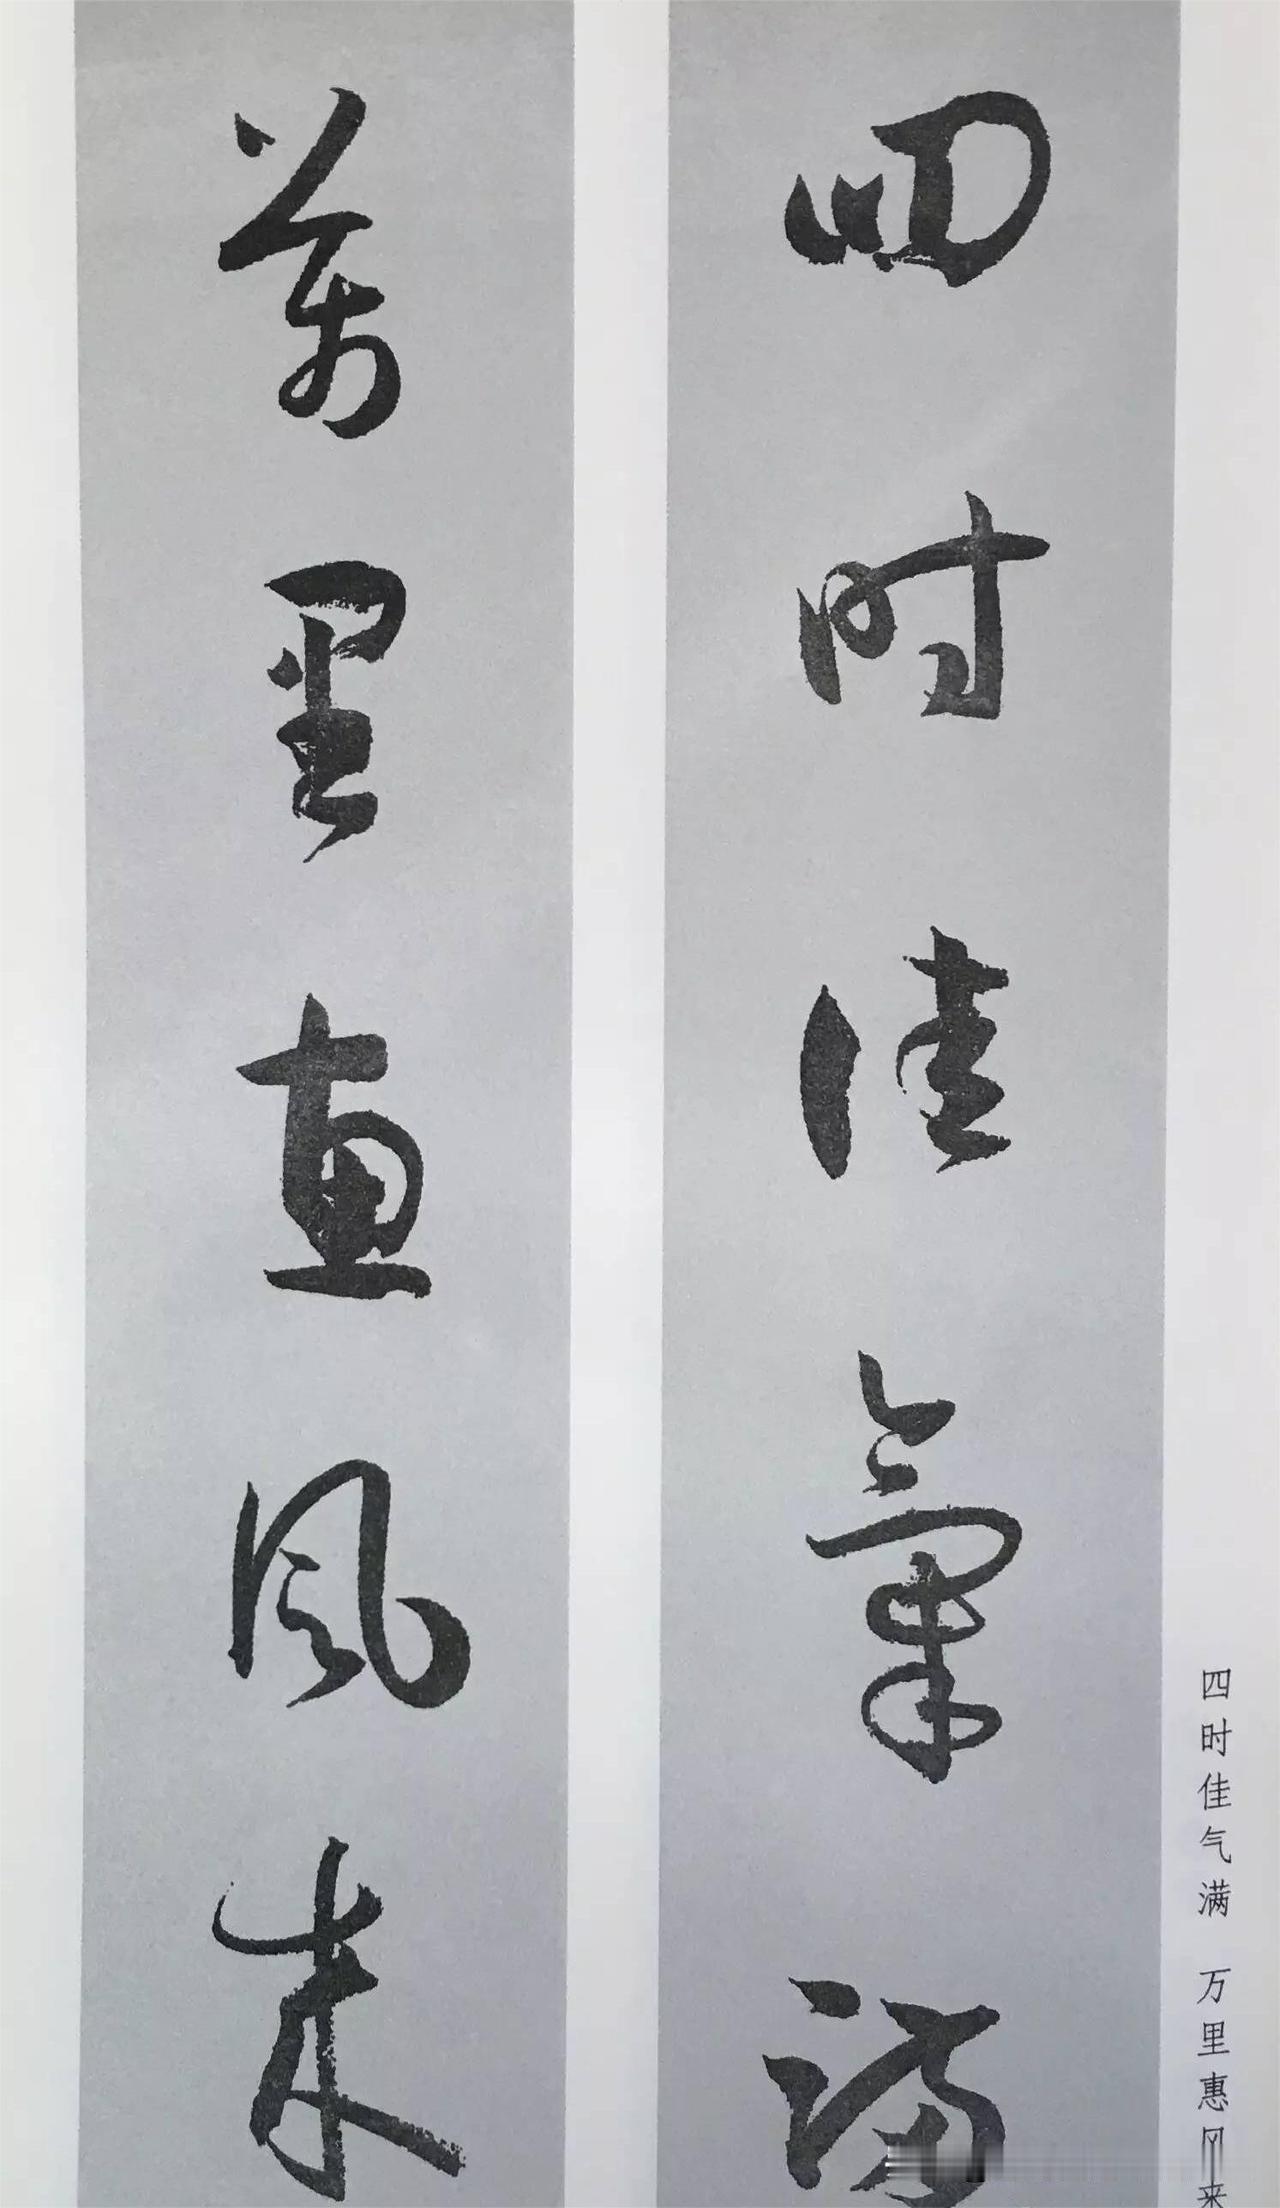 四时佳氣满
萬里惠风来
四时佳气满 万里惠风来